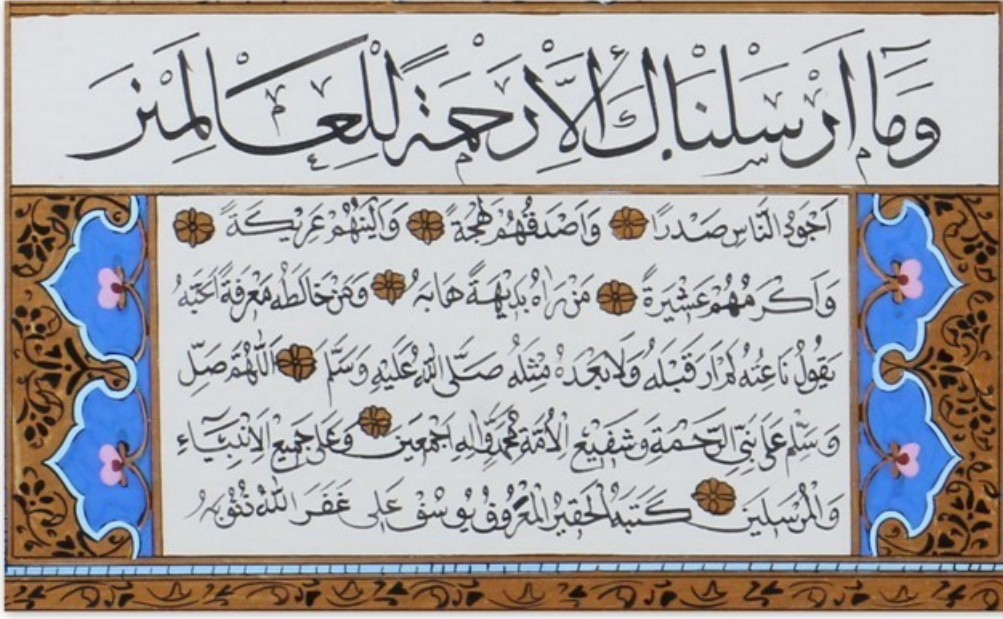 وَمَا اَرْسَلْنَاكَ اِلَّا رَحْمَةً لِلْعَالَمِينَ
اَجْوَدُ النَّاسِ صَدْرًا وَاَصْدَقُهُمْ لَهْجَةً وَاَلْيَنُهُمْ عَرِيكَةً
وَاَكْرَمُهُمْ عَشِيرَةً مَنْ رَاٰهُ بَدِيهَةً هَابَهُ وَمَنْ خَالَطَهُ مَعْرِفَةً اَحَبَّهُ
يَقُولُ نَاعِتُهُ لَمْ اَرَ قَبْلَهُ وَلَا بَعْدَهُ مِثْلَهُ صَلَّى اللّٰهُ عَلَيْهِ وَسَلَّمَ اَللّٰهُمَّ صَلِّ
وَسَلِّمْ عَلَى نَبِيِّ الرَّحْمَةِ وَشَفِيعِ الْاُمَّةِ مُحَمَّدٍ وَاٰلِهِ اَجْمَعِينَ وَعَلَى جَمِيعِ الْاَنْبِيَاءِ
وَالْمُرْسَلِينَ كَتَبَهُ الْحَقِيرُ الْمَعْرُوفُ بِيُوسُفَ عَلِي غَفَرَ اللّٰهُ ذُنُوبَهُ